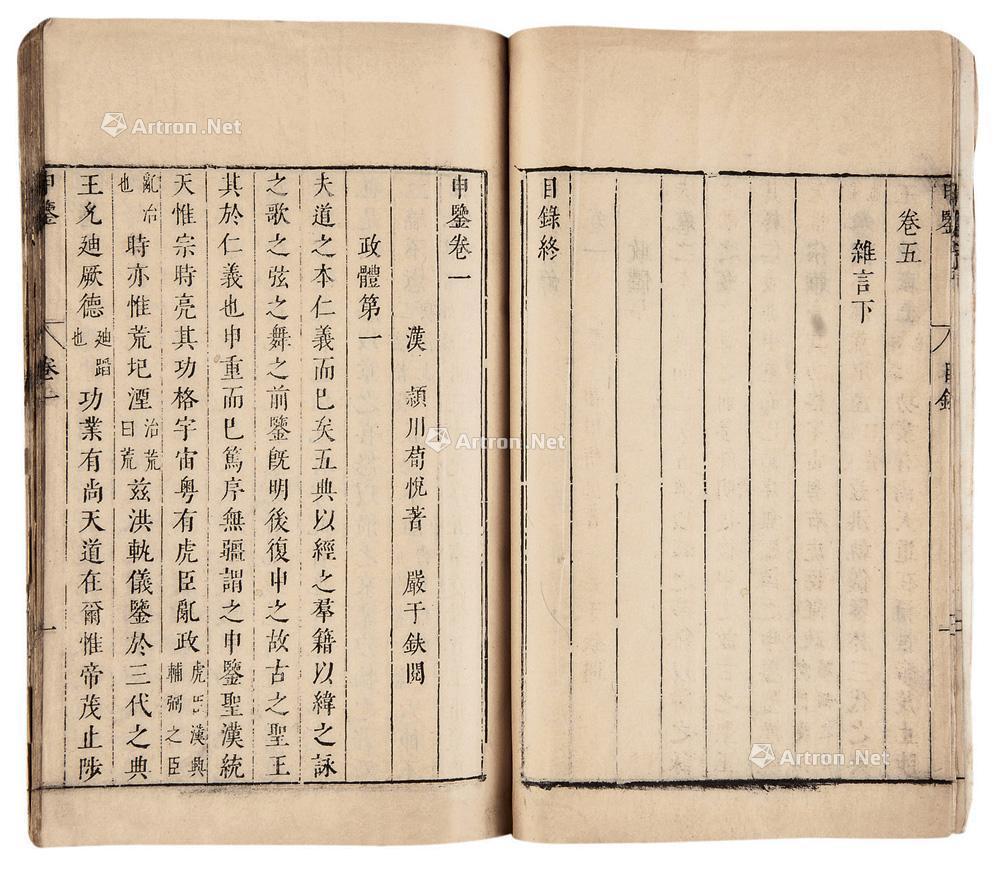 卷五
雜言下
目錄終
申鑒卷一
漢 潁川荀悅著 嚴于鈇閱
政體第一
夫道之本仁義而已矣五典以經之羣籍以緯之詠
之歌之弦之舞之前鑒旣明後復申之故古之聖王
其於仁義也申重而已篤序無疆謂之申鑒聖漢統
天惟宗時亮其功格宇宙粤有虎臣亂政虎臣漢興輔弼之臣
亂治也時亦惟荒圮湮治荒曰荒茲洪軌儀鑒於三代之典
王允廸厥德廸蹈也功業有尚天道在爾惟帝茂止陟
申鑒
卷一
一
目錄
Artron.Net
Artron.Net
Artron.Net
Artron.Net